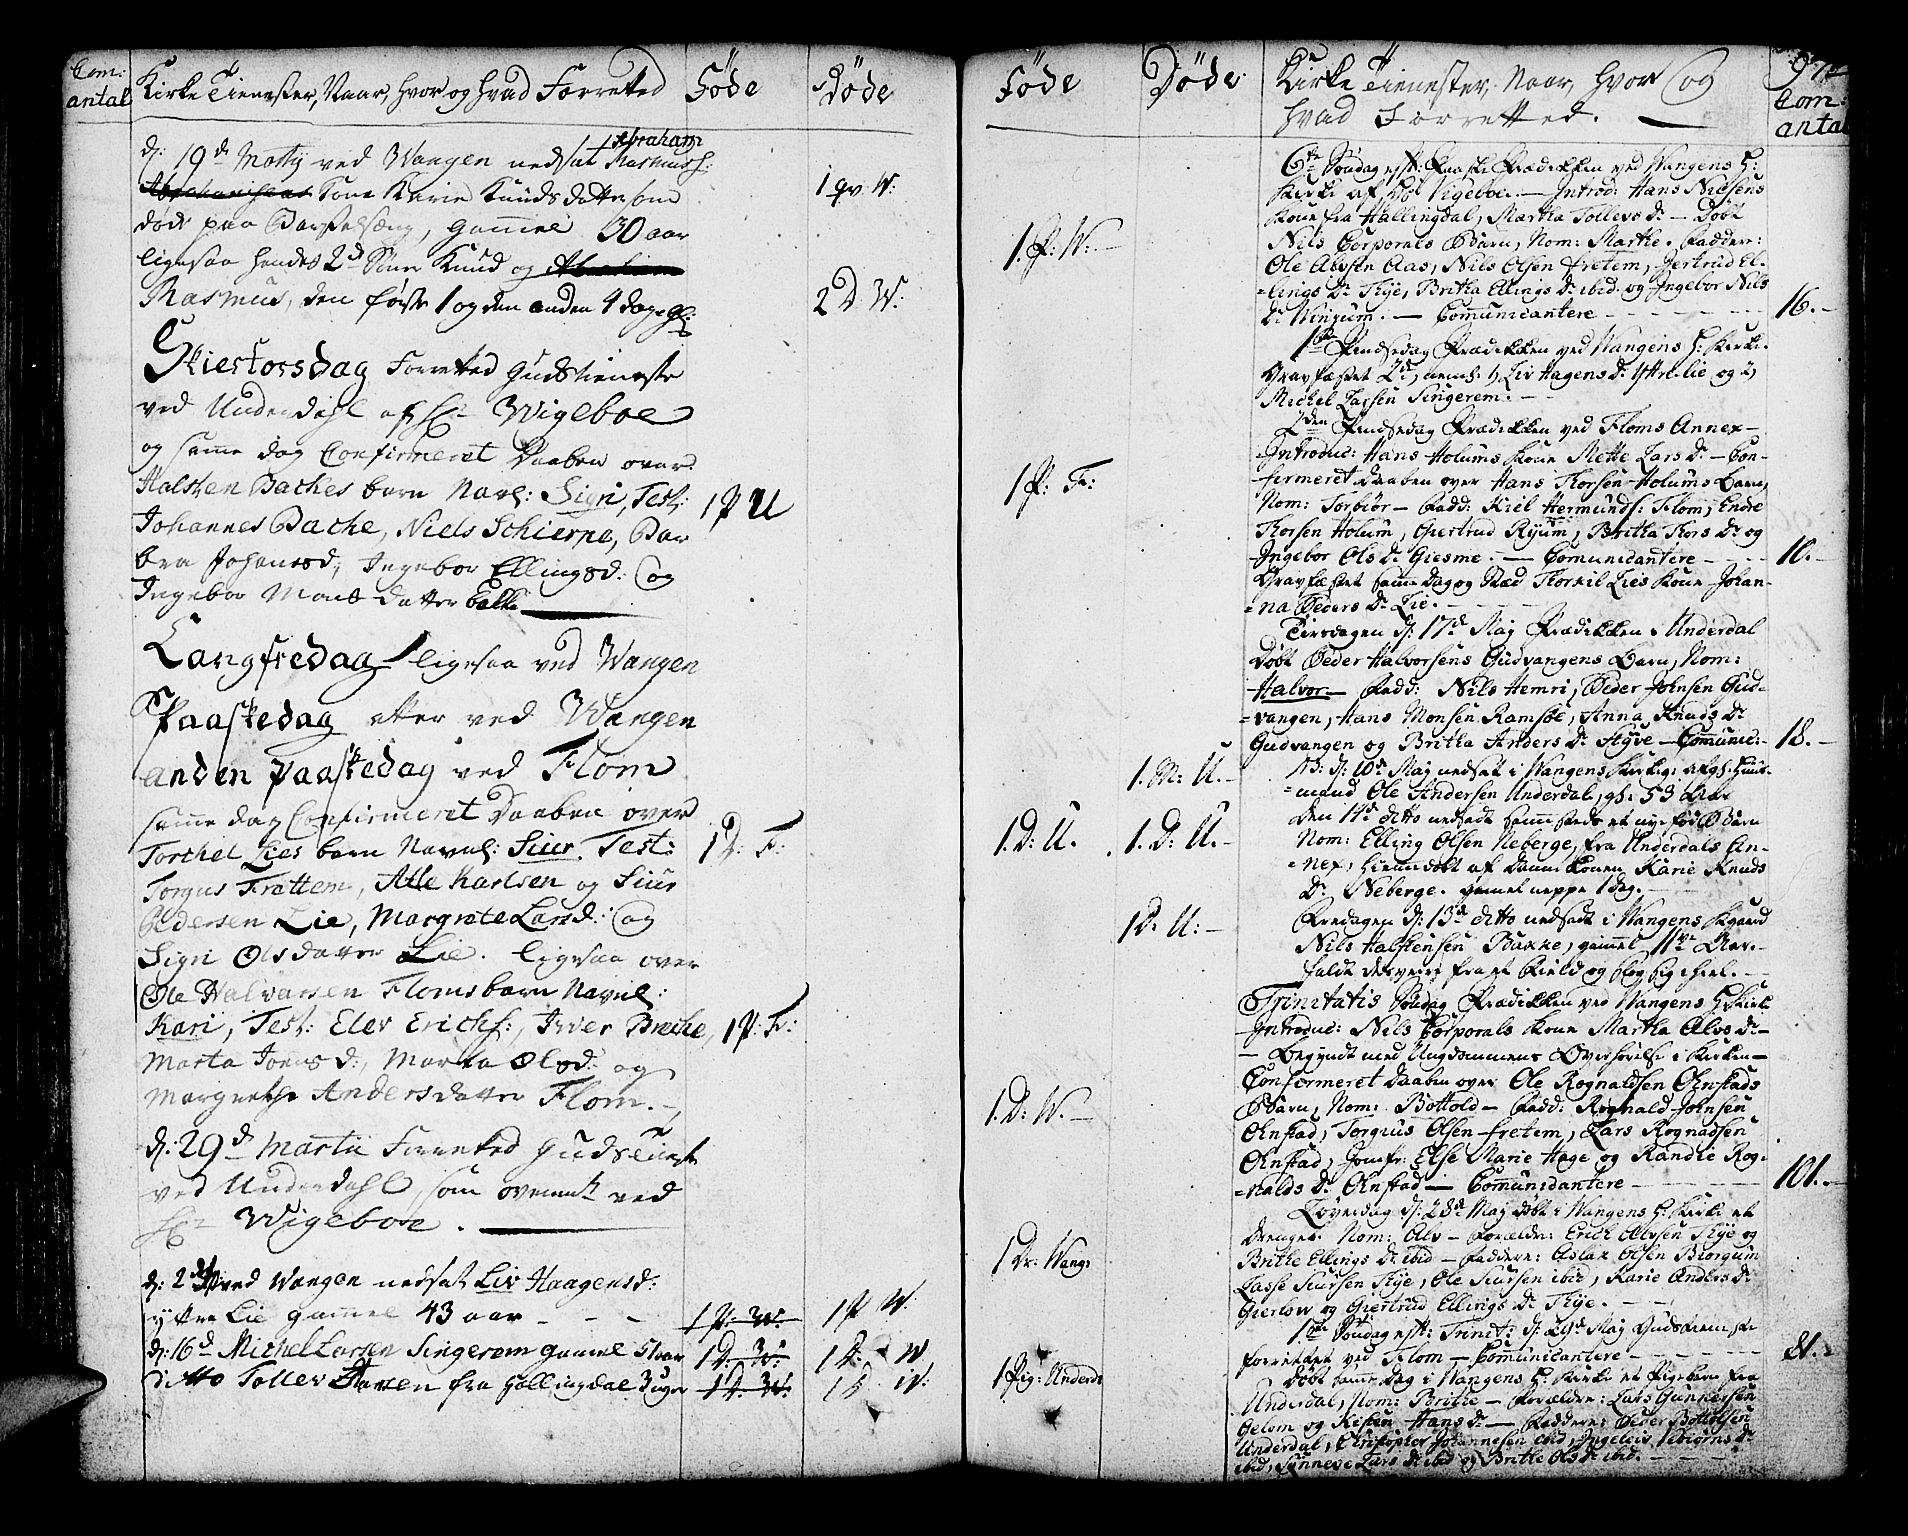 Com:
antal
Kirke Tienester, Naar, hvor og hvad Forrettet
Föde
Döde
d: 19d Martij ved Wangen nedsat Abraham Rasmus:
Kone Karie Knuds datter som
döde paa Barselseng, gammel 30 aar
1 qv W:
ligesaa hendes 2de Sönner Knud og
Rasmus, den förste 1 og den anden 4 dage gl:
2 D W:
Skiertorsdag Forretted Gudstieneste
ved Underdahl af Hr Wigeboe
og samme dag Confirmeret Daaben over
Halsten Baches barn Navl: Sigri, Test:
1 P U
Johannes Bache, Niels Schierpe, Bar
bra Johansd:, Ingebor Ellingsd: og
Ingebor Mons datter Bakke
Langfredag ligesaa ved Wangen
Paaskedag atter ved Wangen
anden paaskedag ved Flom
samme dag Confirmeret Daaben over
Torchel Lies barn Navnl: Siur. Test:
1 D: F:
Torgus Frettem, Atle Karlsen og Siur
Pedersen Lie, Margrete Larsd: og
Sigri Olsdatter Lie. ligesaa over
Ole Halvarsen Floms barn Navnl:
Kari, Test: Elev Erichs:, Iver Breche,
1 P: Fr:
Marta Jonsd:, Marta Olsd: og
Margrethe Andersdatter Flom.
d: 29d Martii Forretted Gudstienest
ved Underdahl, som ovenmelt ved
Hr Wigeboe.
d: 2d ved Wangen nedsat Liv Haagensd:
yttre Lie gamel 43 aar
1 P: W:
1 P W:
d: 16d Michel Larsen Singerem gamel 51 aar
1 D: W:
1 D: W
ditto Tollev fra Hallingdal 3 uger
1 D: W:
1 D W:
Föde
Döde
Kirke Tienester, Naar, hvor og
hvad Forretted.
97
Com:
antal
6te Söndag eft: Paaske Prædikken ved Wangens H:
Kirke af Hr Vigeboe. Introd: Hans Nielsens
Kone fra Hallingdal, Martha Tollevs Dr Döbt
1. P: W:
Nils Corporals Barn, Nom: Marthe. Faddere:
Ole Alvsen Aas, Nils Olsen Fretem, Gertrud El-
lings Dr Skye, Britha Ellings Dr ibid. og Ingebor Nils
Dr Winium. Comunicantere
16.
1te Pindsedag Prædikken ved Wangens H: Kirke.
Gravfæstet 2de, neml: 1) Liv Hagens Dr Ytrelie og 2)
Michel Larsen Singerem.
2den Pindsedag Prædikken ved Floms Annex
Introduc: Hans Holums Kone Mette Lars Dr Con-
firmeret daaben over Hans Thorsen Holums Barn,
1 P: Fr:
Nom: Torbiör Fadd: Kiel Hermunds: Flom, Endre
Thorsen Holum, Giertrud Ryum, Britha Thors Dr og
Ingebor Ols Dr Giesme. Comunicantere
10.
Gravfæstet samme dag og Stæd Thorkil Lies Kone Johan-
na Peders Dr Lie.
Tirsdagen d: 17d Maj Prædikken i Underdal
Döbt Peder Halvorsens Gudvangens Barn, Nom:
Halvor Fadd: Nils Hemri, Peder Johnsen Gud-
vangen, Hans Monsen Ramsöe, Anna Knuds Dr
Gudvangen og Britha Anders Dr Styve Comunic:
18.
1. M: U.
NB: d: 10d Maj nedsat i Wangens Kirkeg: afg: Huus-
mand Ole Andersen Underdal, gl: 53 Aar
den 11d ditto nedsadt sammesteds et nyföd Barn
1 D: U.
1. D: U.
Nom: Elling Olsen Neberge, fra Underdals An-
nex, hiemmedöbt af Dannekonen Karie Knuds
Dr Neberge. gamel neppe 1 dag.
1 D: U:
Fredagen d: 13d ditto nedsadt i Wangens Kgaard
Nils Halstensen Bakke, gammel 11ve Aar.
faldt desværre fra et Field og slog sig ihiel.
Trinitatis Söndag Prædikken ved Wangens H: Kirke
Introduc: Nils Corporals Kone Martha Alvs Dr
Begyndt med Ungdommens Overhörelse i Kirken
Confermeret daaben over Ole Rognaldsen Ohnstads
1. D: W.
Barn, Nom: Bottold Fadd: Rognald Johnsen
Ohnstad, Torgius Olsen Fretem, Lars Rognadsen
Ohnstad, Jomfr: Else Marie Hage og Randie Rog-
nalds Dr Ohnstad Comunicantere
101.
Löverdag d: 28d Maj döbt i Wangens H: Kirke et
Drenge. Nom: Alv Forældre: Erich Alvsen Skye og
1 Dr: Wang:
Brithe Ellings Dr ibid Faddere: Aslak Olsen Biorgum
Lasse Siursen Skye, Ole Siursen ibid, Karie Anders Dr
Gierlow og Giertrud Ellings Dr Skye.
1te Söndag eft: Trinit: d: 29d Maj Gudstieneste
forrettet ved Flom Comunicantere
21.
1 Pig: Underd:
Döbt samme Dag i Wangens H: Kirke et Pigebarn fra
Underdal, Nom: Brithe Forældre: Lars Gunnersen
Gelom og Kisten Hans Dr Faddere: Peder Bottolsen
Underdal, Christopher Johannesen ibid, Ingeleiv Dr
ibid, Synneve Lars Dr ibid og Brithe Ols Dr ibid.